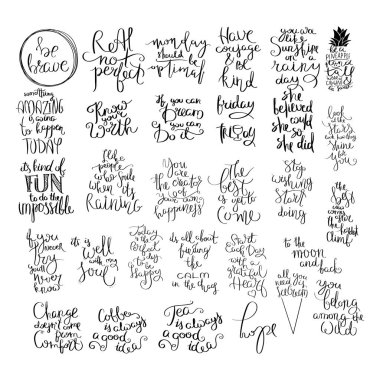 be
brave
REAL
not
perfect
monday
should
be
optional
Have
courage
&
be
kind
you are
like
Sunshine
on a
rainy
day
be a
PINEAPPLE
something
AMAZING
is going
to happen
TODAY
Know
your
Worth
if you can
Dream
you can
Do it
friday
friyay
she
believed
she
could
so she
did
Look
stars
shine for
you
it's kind of
FUN
to do the
impossible
people
who smile
when it's
Raining
You
are the
creator
your own
happiness
the
best
is yet to
come
stop
wishing
start
doing
the
Best
view
comes
after
the
climb
if you
never
try
you'll
never
know
it is
well
with my
soul
Today
is the
Perfect
day
to be
Happy
it's all about
finding
the
CALM
in the
chaos
Start
Each Day
with a
grateful
Heart
to the
moon
and back
all you
need is
icecream
you
belong
among the
wild
Change
doesn't
come
from
Comfort
Coffee
is always
a good
idea
Tea is
always
a good
idea
hope